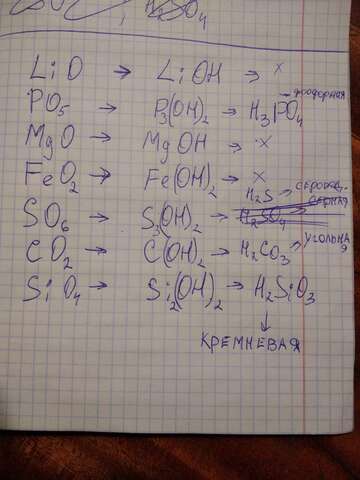 H₂SO₄
LiO → LiOH → x
PO₅ → P₃(OH)₂ → H₃PO₄ - фосфорная
MgO → MgOH → x
FeO₂ → Fe(OH)₂ → x
H₂S →
SO₆ → S₃(OH)₂ → H₂SO₄ серная
CO₂ → C(OH)₂ → H₂CO₃ → угольная
SiO₄ → Si₂(OH)₂ → H₂SiO₃
↓
КРЕМНЕВАЯ